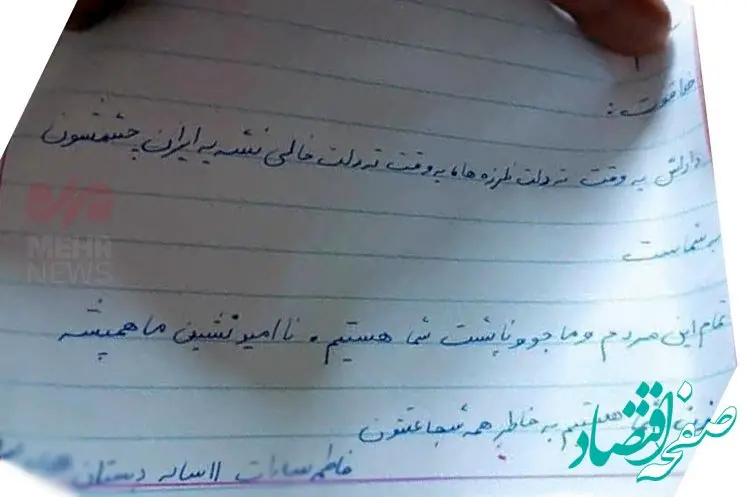 خداقوت :
داداش یه وقت ته دلت نلرزه ها، یه وقت ته دلت خالی نشه یه ایران چشمشون
به شماست
تمام این مردم و ما جوونا پشت شما هستیم. ناامید نشین ما همیشه
هستیم به خاطر همه شجاعتتون
فاطمه سادات 11 ساله دبستان
MEHR
NEWS
صفحه اقتصاد